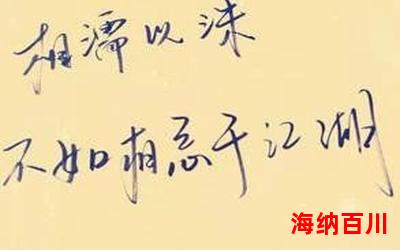 相濡以沫
不如相忘于江湖
海纳百川